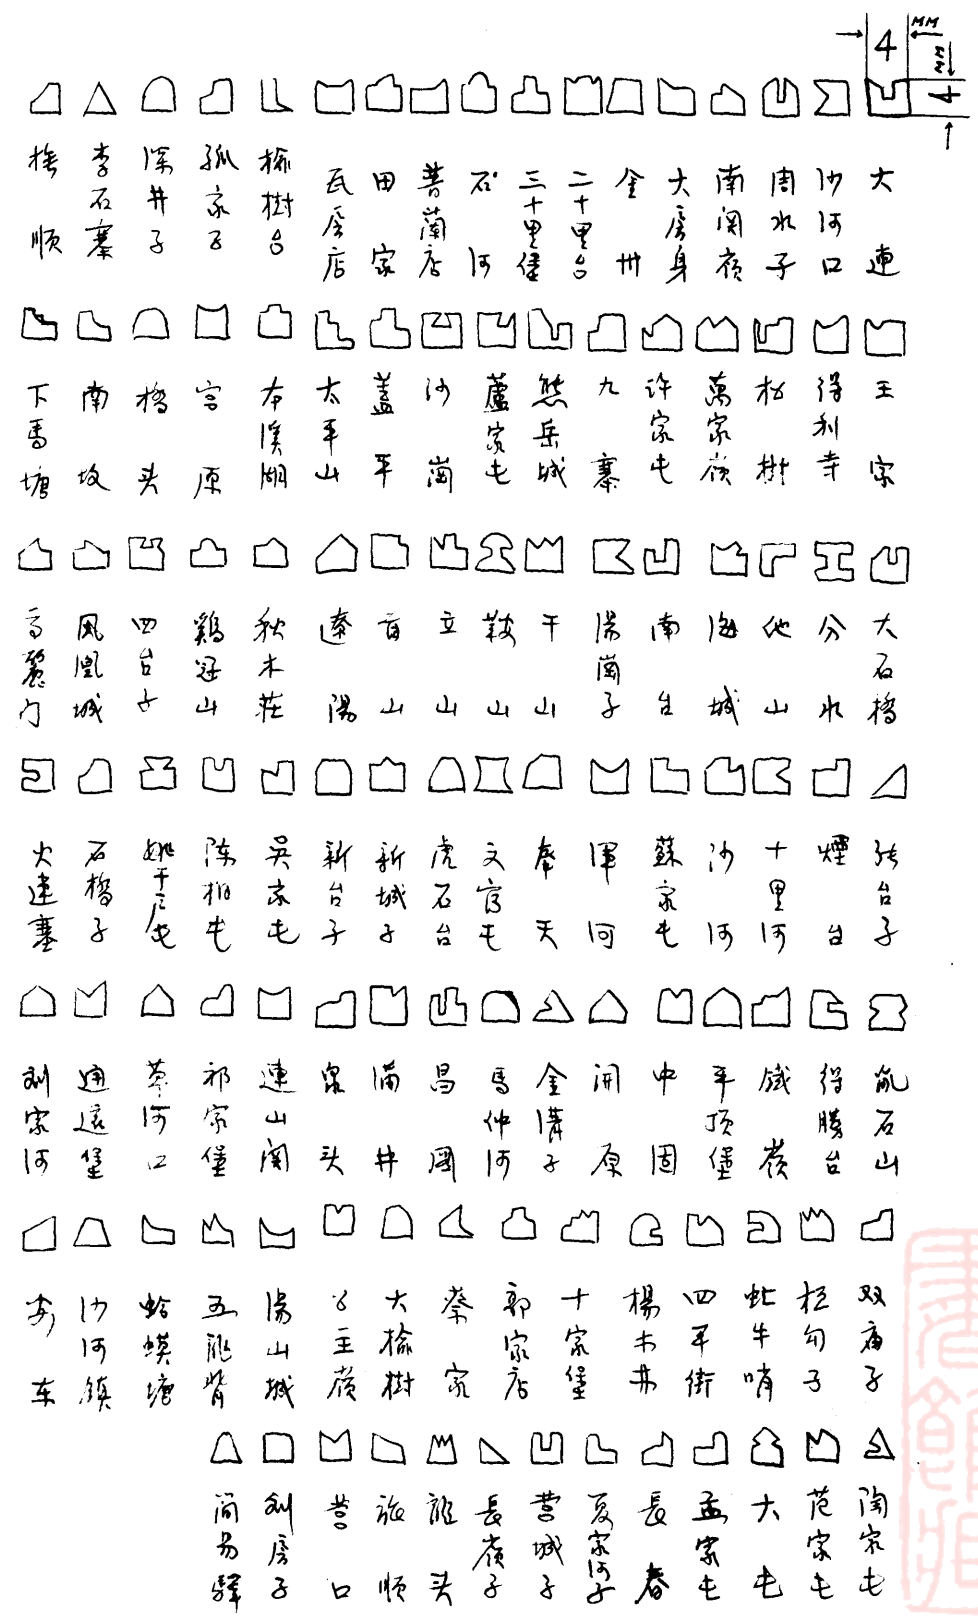 4
MM
4
MM
大連
沙河口
周水子
南関嶺
大房身
金州
二十里台
三十里堡
石河
普蘭店
田家
瓦房店
榆樹台
孤家子
深井子
李石寨
撫順
王家
得利寺
松樹
萬家嶺
许家屯
九寨
熊岳城
蘆家屯
沙崗
蓋平
太平山
本溪湖
宫原
橋头
南坟
下馬塘
大石橋
分水
他山
海城
南台
湯崗子
千山
鞍山
立山
首山
遼陽
秋木莊
鷄冠山
四台子
鳳凰城
高麗门
张台子
煙台
十里河
沙河
蘇家屯
渾河
奉天
文官屯
虎石台
新城子
新台子
吴家屯
陈相屯
姚千户屯
石橋子
火連寨
乱石山
得勝台
鐵嶺
平顶堡
中固
開原
金溝子
馬仲河
昌圖
满井
泉头
連山関
祁家堡
草河口
通远堡
刘家河
双庙子
桓勾子
虻牛哨
四平街
楊木林
十家堡
郭家店
蔡家
大榆樹
公主嶺
湯山城
五龍背
蛤蟆塘
沙河镇
安东
陶家屯
范家屯
大屯
孟家屯
長春
夏家河子
营城子
長嶺子
龍头
旅順
营口
刘房子
简易驛